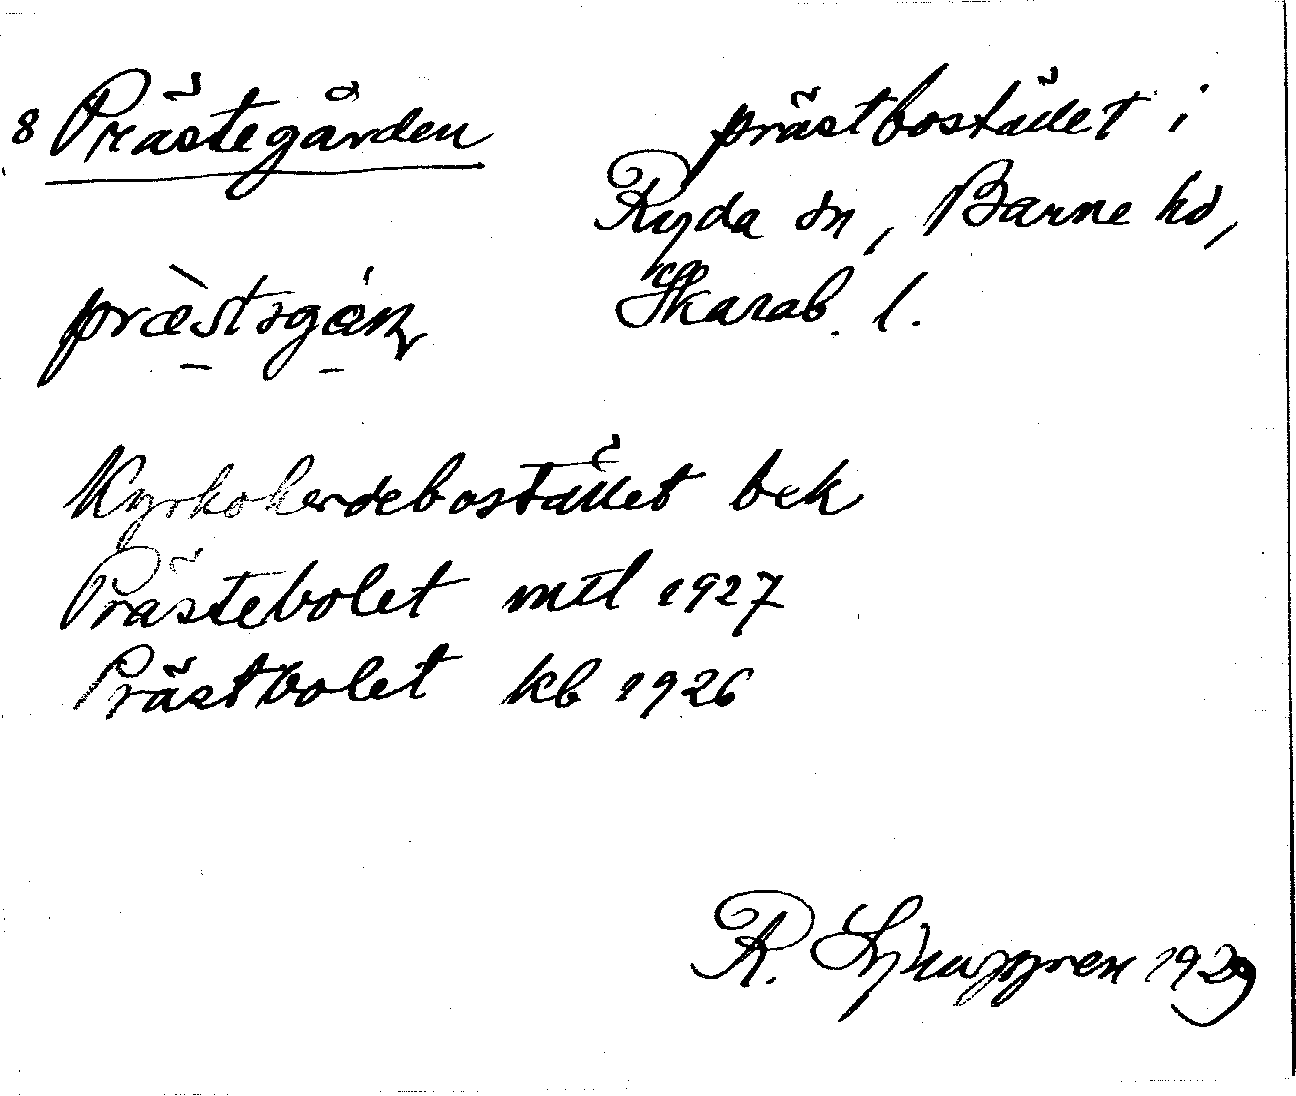 8 Prästegården
prästbostället i
Ryda sn, Barne hd,
Skarab. l.
Kyrkoherdebostället bek
Prästebolet mtl 1927
Prästbolet kb 1926
R. Ljunggren 1929